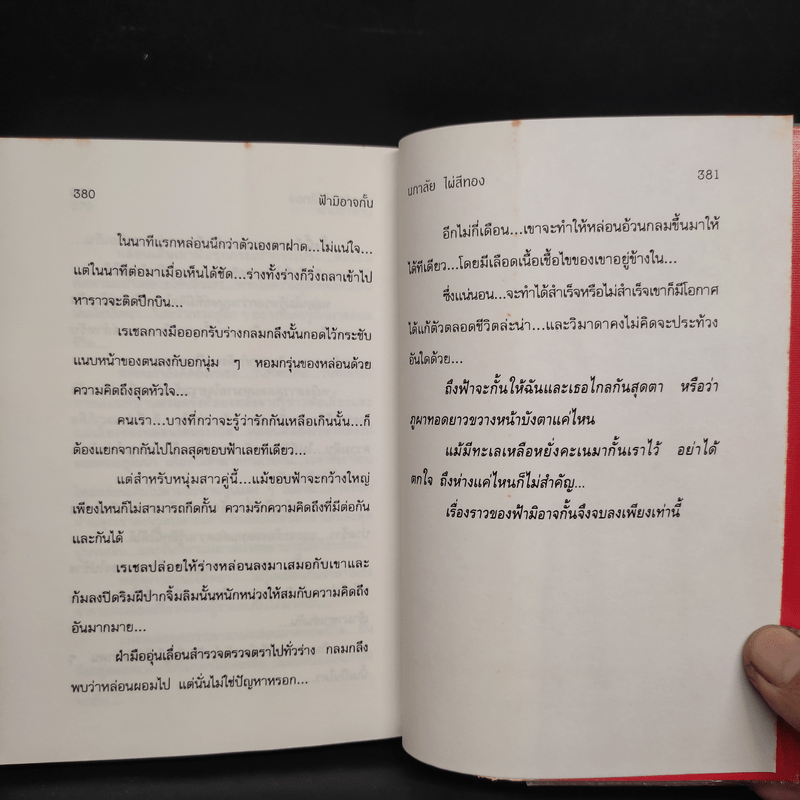 380
ฟ้ามิอาจกั้น
ในนาทีแรกหล่อนนึกว่าตัวเองตาฝาด...ไม่แน่ใจ...
แต่ในนาทีต่อมาเมื่อเห็นได้ชัด...ร่างทั้งร่างก็วิ่งถลาเข้าไป
หาราวจะติดปีกบิน...
เรเชลกางมือออกรับร่างกลมกลึงนั้นกอดไว้กระชับ
แนบหน้าของตนลงกับอกนุ่ม ๆ หอมกรุ่นของหล่อนด้วย
ความคิดถึงสุดหัวใจ...
คนเรา...บางที่กว่าจะรู้ว่ารักกันเหลือเกินนั้น...ก็
ต้องแยกจากกันไปไกลสุดขอบฟ้าเลยทีเดียว...
แต่สำหรับหนุ่มสาวคู่นี้...แม้ขอบฟ้าจะกว้างใหญ่
เพียงไหนก็ไม่สามารถกีดกั้น ความรักความคิดถึงที่มีต่อกัน
และกันได้
เรเชลปล่อยให้ร่างหล่อนลงมาเสมอกับเขาและ
ก้มลงปิดริมฝีปากจิ้มลิ้มนั้นหนักหน่วงให้สมกับความคิดถึง
อันมากมาย...
ฝ่ามืออุ่นเลื่อนสำรวจตรวจตราไปทั่วร่าง กลมกลึง
พบว่าหล่อนผอมไป แต่นั่นไม่ใช่ปัญหาหรอก...
นกาลัย ไผ่สีทอง
381
อีกไม่กี่เดือน...เขาจะทำให้หล่อนอ้วนกลมขึ้นมาให้
ได้ทีเดียว...โดยมีเลือดเนื้อเชื้อไขของเขาอยู่ข้างใน...
ซึ่งแน่นอน...จะทำได้สำเร็จหรือไม่สำเร็จเขาก็มีโอกาศ
ได้แก้ตัวตลอดชีวิตล่ะน่า...และวิมาดาคงไม่คิดจะประท้วง
อันใดด้วย...
ถึงฟ้าจะกั้นให้ฉันและเธอไกลกันสุดตา หรือว่า
ภูผาทอดยาวขวางหน้าบังตาแค่ไหน
แม้มีทะเลเหลือหยั่งคะเนมากั้นเราไว้ อย่าได้
ตกใจ ถึงห่างแค่ไหนก็ไม่สำคัญ...
เรื่องราวของฟ้ามิอาจกั้นจึงจบลงเพียงเท่านี้